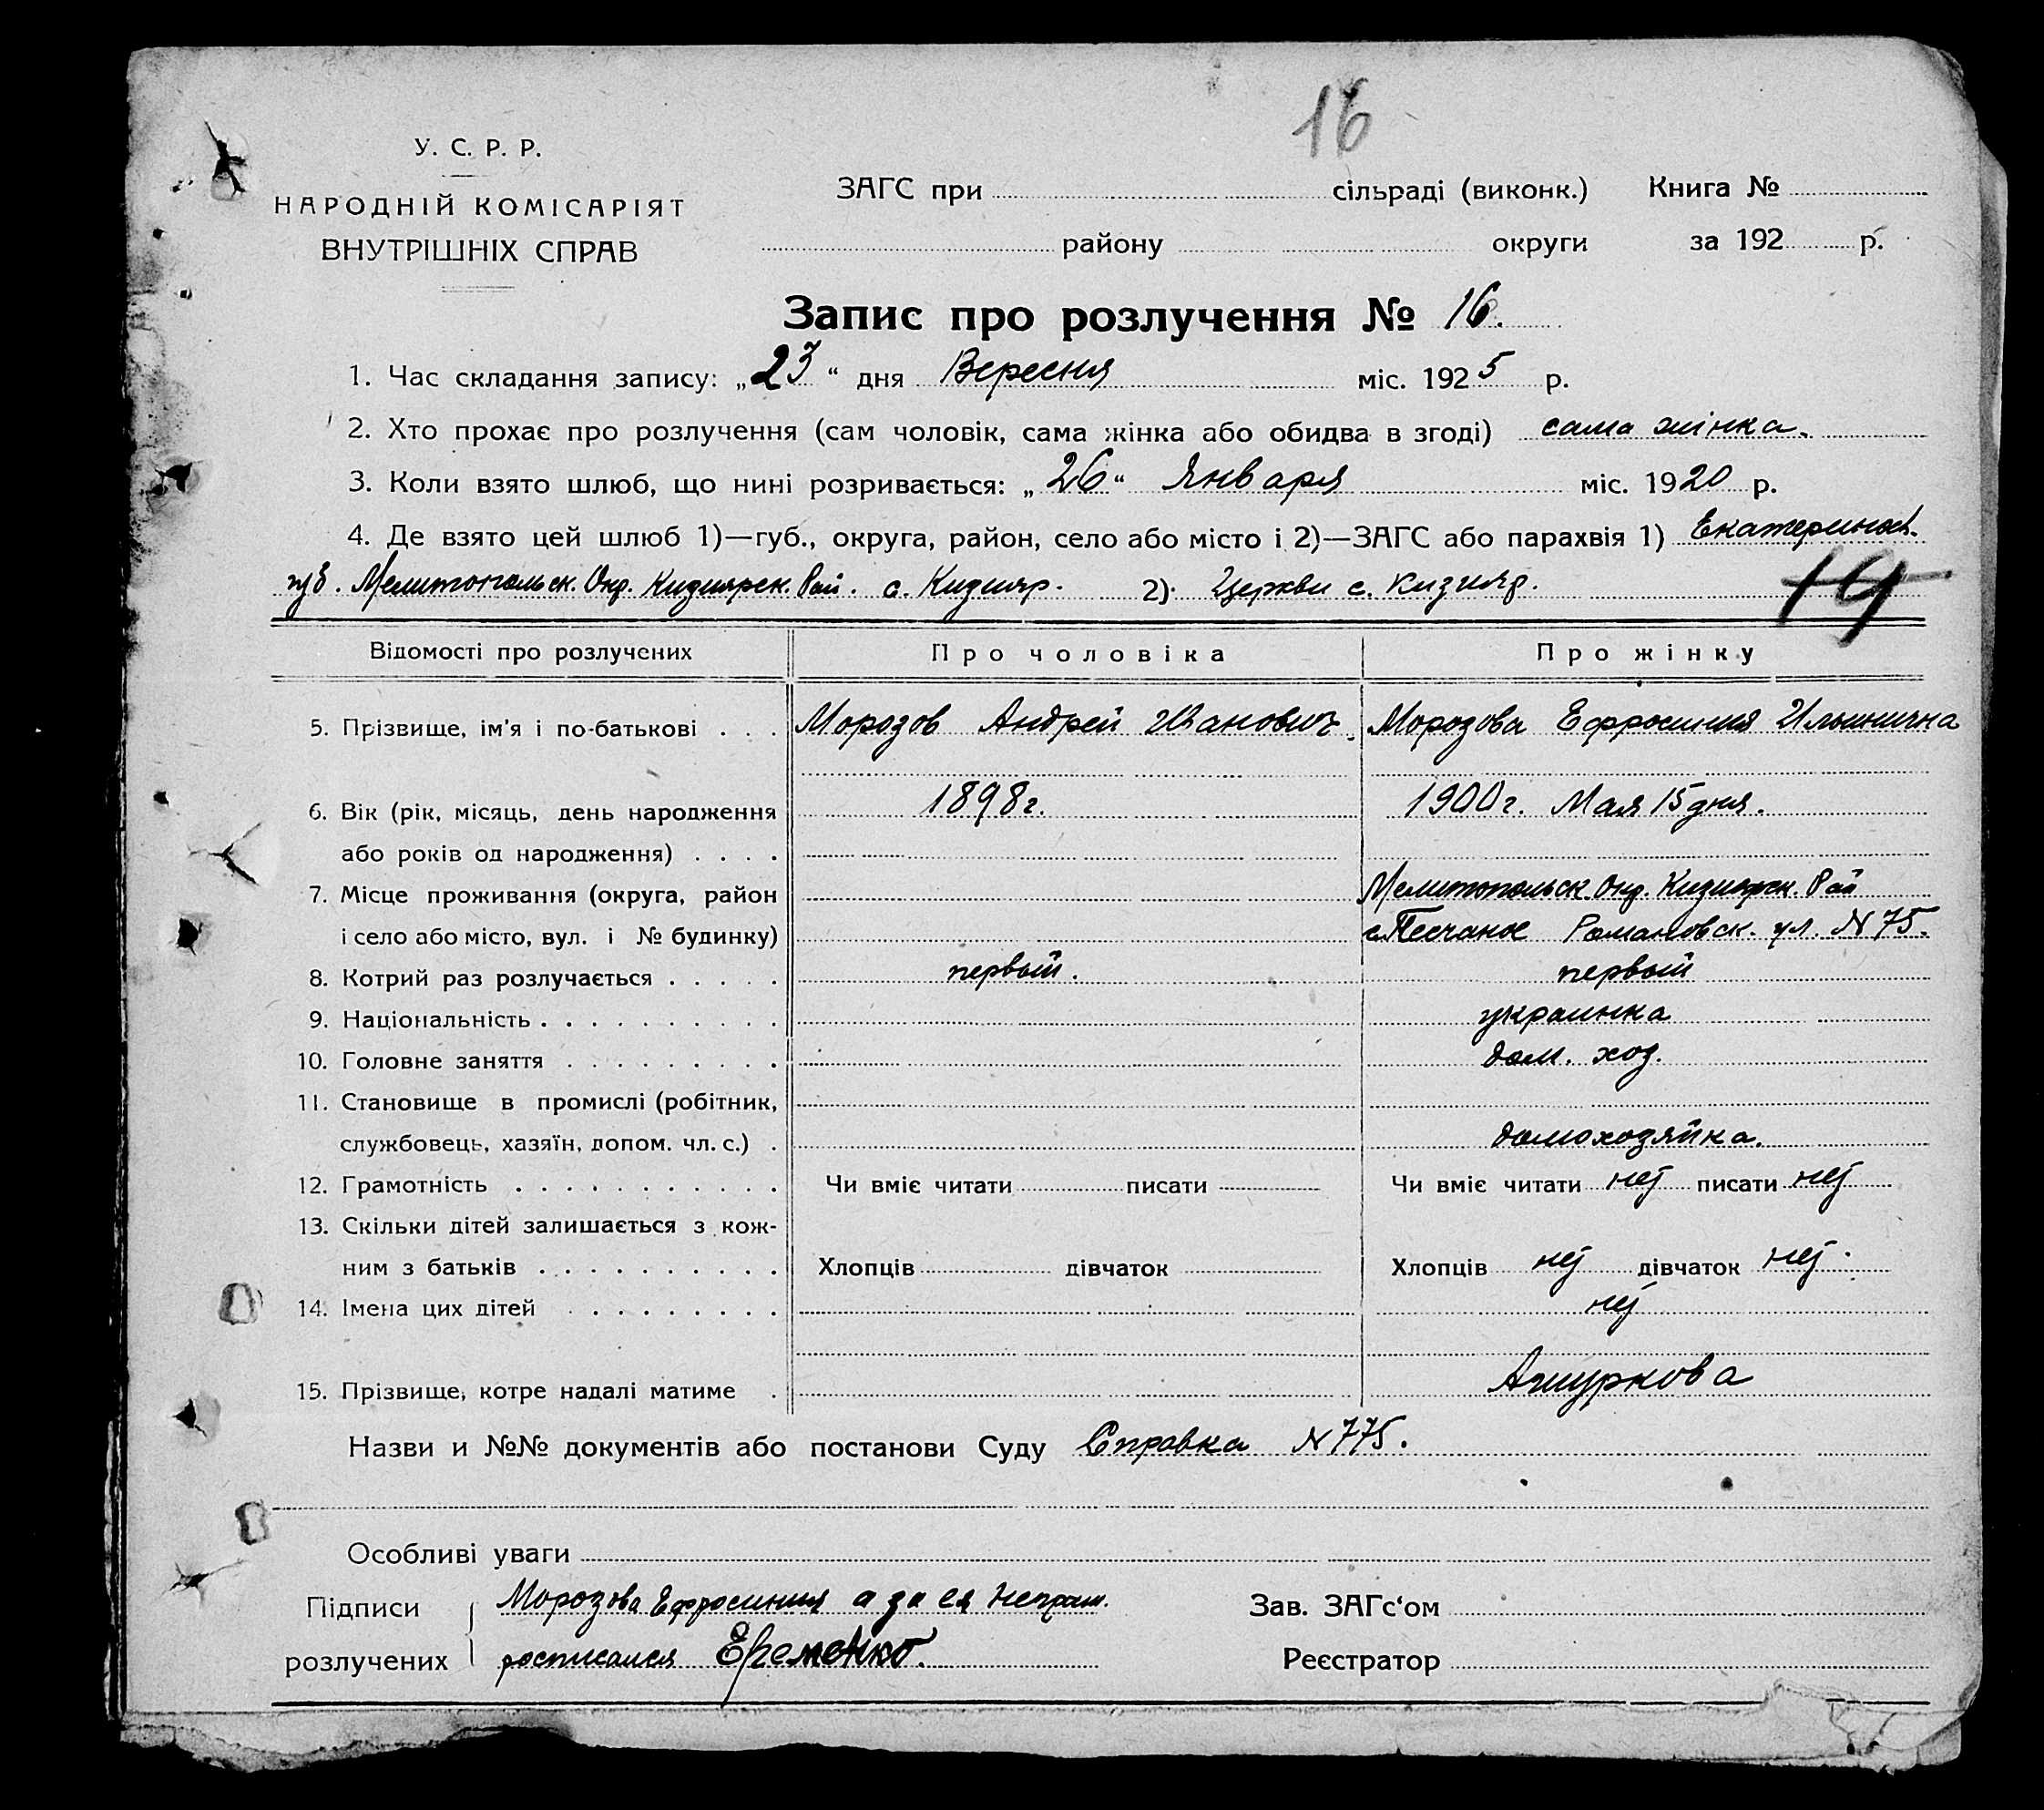 16
У. С. Р. Р.
НАРОДНІЙ КОМІСАРІЯТ
ВНУТРІШНІХ СПРАВ
ЗАГС при сільраді (виконк.) Книга №
району округи за 192 р.
Запис про розлучення № 16.
1. Час складання запису: „23“ дня Вересня міс. 1925 р.
2. Хто прохає про розлучення (сам чоловік, сама жінка або обидва в згоді) сама жінка.
3. Коли взято шлюб, що нині розривається: „26“ Января міс. 1920 р.
4. Де взято цей шлюб 1)—губ., округа, район, село або місто і 2)—ЗАГС або парахвія 1) Екатериносл.
губ. Мелитопольск. Окр. Кизиярск. Рай. с. Кизияр. 2) Церкви с. Кизияр.
19
Відомості про розлучених Про чоловіка Про жінку
5. Прізвище, ім'я і по-батькові . . . Морозов Андрей Иванович. Морозова Ефросиния Ильинична
6. Вік (рік, місяць, день народження 1898 г. 1900 г. Мая 15 дня.
або років од народження) . . . .
7. Місце проживання (округа, район Мелитопольск. Окр. Кизиярск. Рай
і село або місто, вул. і № будинку) с Песчаное Романовск. ул. N 75.
8. Котрий раз розлучається . . . . . первый. первый
9. Національність . . . . . . . . . . украинка
10. Головне заняття . . . . . . . . . дом. хоз.
11. Становище в промислі (робітник,
службовець, хазяїн, допом. чл. с.) . домохозяйка.
12. Грамотність . . . . . . . . . . . Чи вміє читати писати Чи вміє читати нет писати нет
13. Скільки дітей залишається з кож-
ним з батьків . . . . . . . . . . Хлопців дівчаток Хлопців нет дівчаток нет.
14. Імена цих дітей . . . . . . . . . нет
15. Прізвище, котре надалі матиме . Ашуркова
Назви и №№ документів або постанови Суду Справка N 775.
Особливі уваги
Підписи Морозова Ефросиния а за ея неграм. Зав. ЗАГс‘ом
розлучених росписался Еременко. Реєстратор